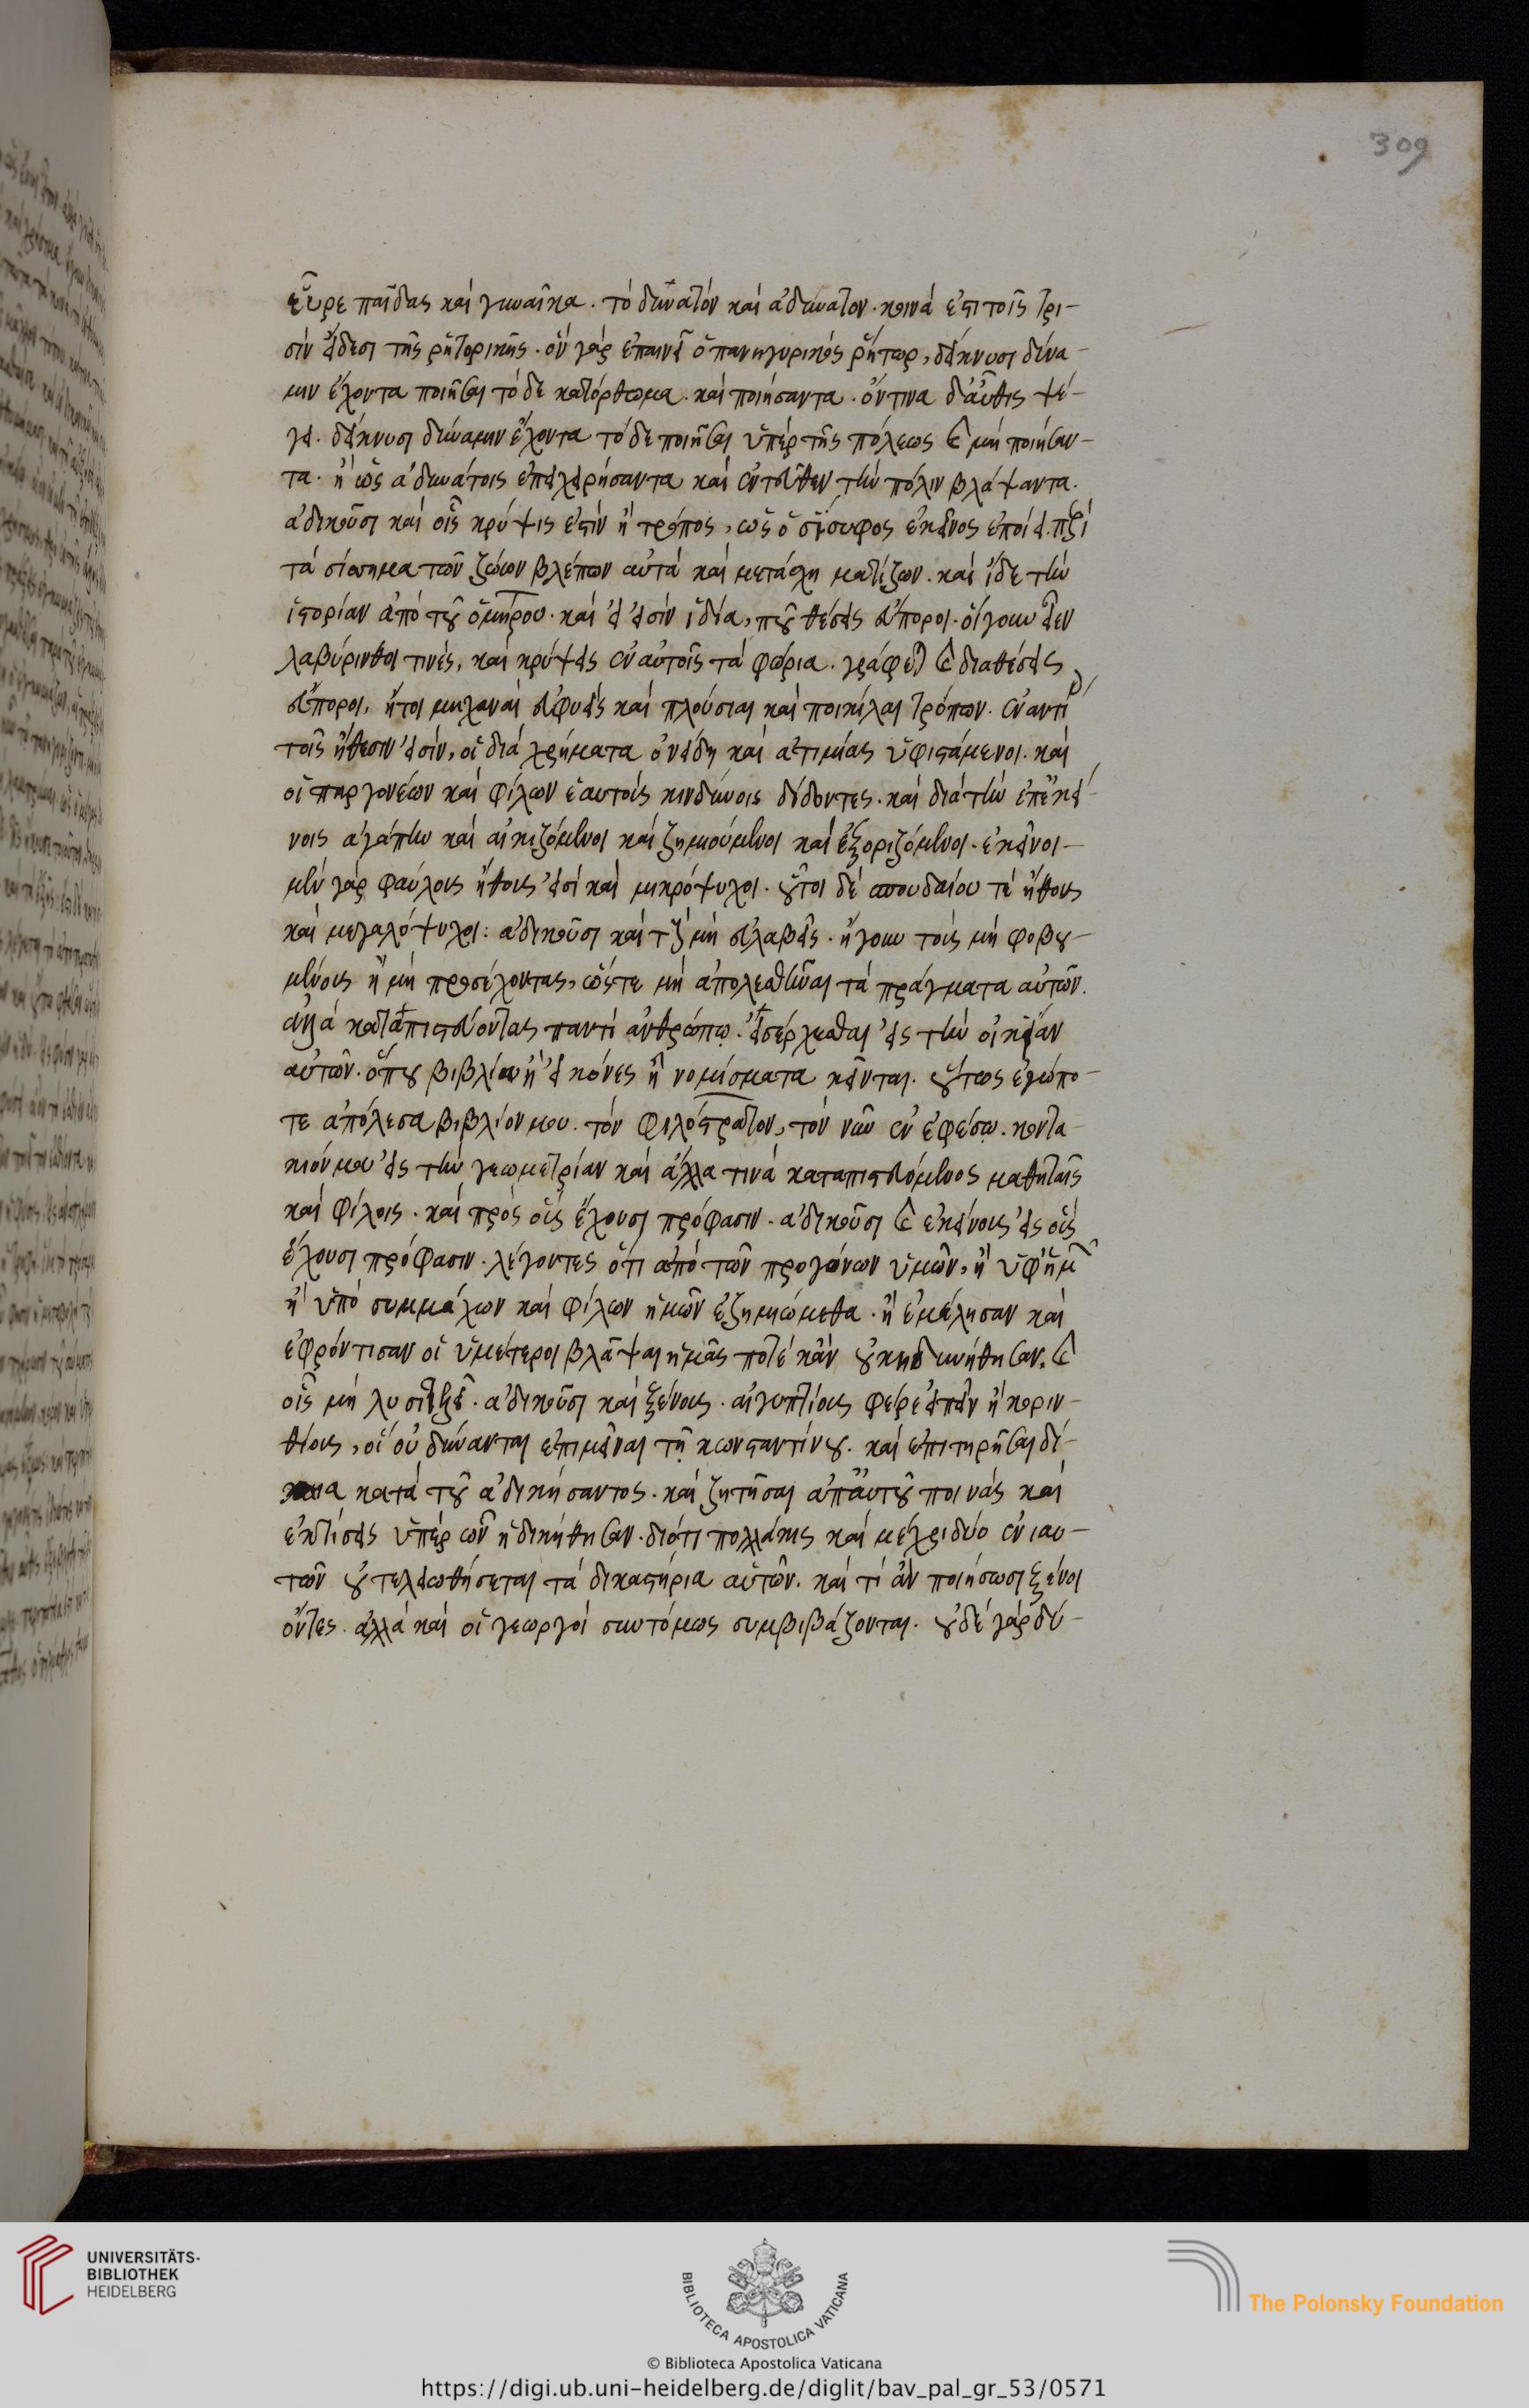 309
εὗρε παῖδας καὶ γυναῖκα. τὸ δυνατὸν καὶ ἀδύνατον. κοινὰ ἐπὶ τοῖς τρι-
σὶν εἴδεσι τῆς ῥητορικῆς. ὃν γὰρ ἐπαινεῖ ὁ πανηγυρικὸς ῥήτωρ, δείκνυσι δύνα-
μιν ἔχοντα ποιῆσαι τόδε κατόρθωμα. καὶ ποιήσαντα. ὅντινα δ' αὖθις ψέ-
γει. δείκνυσι δύναμιν ἔχοντα τόδε ποιῆσαι ὑπὲρ τῆς πόλεως καὶ μὴ ποιήσαν-
τα. ἢ ὡς ἀδυνάτοις ἐπιχειρήσαντα καὶ ἐντεῦθεν τὴν πόλιν βλάψαντα.
ἀδικοῦσι καὶ οἷς κρύψις ἐστὶν ἢ τρόπος, ὡς ὁ σίσυφος ἐκεῖνος ἐποίει. περὶ
τὰ σίσημα τῶν ζώων βλέπων αὐτὰ καὶ μετασχηματίζων. καὶ ἴδε τὴν
ἱστορίαν ἀπὸ τοῦ ὁμήρου. καὶ εἰ εἰσὶν ἰδία, που θέσεις εὔποροι. οἵγουν εἶεν
λαβύρινθοι τινές, καὶ κρύψεις ἐν αὐτοῖς τὰ φώρια. γράφεται καὶ διαθέσεις
εὔποροι, ἤτοι μηχαναὶ εὐφυεῖς καὶ πλούσιαι καὶ ποικίλαι τρόπων. ἐναντίοι
τοῖς ἤθεσιν εἰσὶν, οἱ διὰ χρήματα ὀνείδη καὶ ἀτιμίας ὑφιστάμενοι. καὶ
οἱ παρ γονέων καὶ φίλων ἑαυτοὺς κινδύνοις διδόντες. καὶ διὰ τὴν ἐπ' ἐκεί-
νοις ἀγάπην καὶ αἰκιζόμενοι καὶ ζημιούμενοι καὶ ἐξοριζόμενοι. ἐκεῖνοι
μὲν γὰρ φαύλους ἤθους εἰσὶ καὶ μικρόψυχοι. οὗτοι δὲ σπουδαίου τὲ ἤθους
καὶ μεγαλόψυχοι: ἀδικοῦσι καὶ τοὺς μὴ εὐλαβεῖς. ἤγουν τοὺς μὴ φοβου-
μένους ἢ μὴ προσέχοντας, ὥστε μὴ ἀπολεσθῆναι τὰ πράγματα αὐτῶν.
ἀλλὰ καταπιστεύοντας παντὶ ἀνθρώπῳ. εἰσέρχεσθαι εἰς τὴν οἰκείαν
αὐτῶν. ὅπου βιβλίον ἢ εἰκόνες ἢ νομίσματα κεῖνται. οὕτως ἐγώ πο-
τε ἀπόλεσα βιβλίον μου. τὸν φιλόστρατον, τὸν νῦν ἐν ἐφέσῳ. κοντα-
κιόν μου εἰς τὴν γεωμετρίαν καὶ ἄλλα τινὰ καταπιστευόμενος μαθηταῖς
καὶ φίλοις. καὶ πρὸς οὓς ἔχουσι πρόφασιν. ἀδικοῦσι καὶ ἐκείνους εἰς οὓς
ἔχουσι πρόφασιν. λέγοντες ὅτι ἀπὸ τῶν προγόνων ὑμῶν, ἢ ὑφ' ἡμῶν
ἢ ὑπὸ συμμάχων καὶ φίλων ἡμῶν ἐζημιώμεθα. ἢ ἐμέλησαν καὶ
ἐφρόντισαν οἱ ὑμέτεροι βλάψαι ἡμᾶς ποτὲ κἂν οὐκ ἠδυνήθησαν. καὶ
οἷς μὴ λυσιτελεῖ. ἀδικοῦσι καὶ ξένους. αἰγυπτίους φέρε εἰπεῖν ἢ κοριν-
θίους, οἳ οὐ δύνανται ἐπιμεῖναι τῇ κωνσταντίνου. καὶ ἐπιτηρῆσαι δί-
καια κατὰ τοῦ ἀδικήσαντος. καὶ ζητῆσαι ἀπ' αὐτοῦ ποινὰς καὶ
ἐκτίσεις ὑπὲρ ὧν ἠδικήθησαν. διότι πολλάκις καὶ μέχρι δύο ἐνιαυ-
τῶν οὐ τελειωθήσεται τὰ δικαστήρια αὐτῶν. καὶ τί ἂν ποιήσωσι ξένοι
ὄντες. ἀλλὰ καὶ οἱ γεωργοὶ συντόμως συμβιβάζονται. οὐδὲ γὰρ δύ-
UNIVERSITÄTS-
BIBLIOTHEK
HEIDELBERG
BIBLIOTECA APOSTOLICA VATICANA
The Polonsky Foundation
© Biblioteca Apostolica Vaticana
https://digi.ub.uni-heidelberg.de/diglit/bav_pal_gr_53/0571